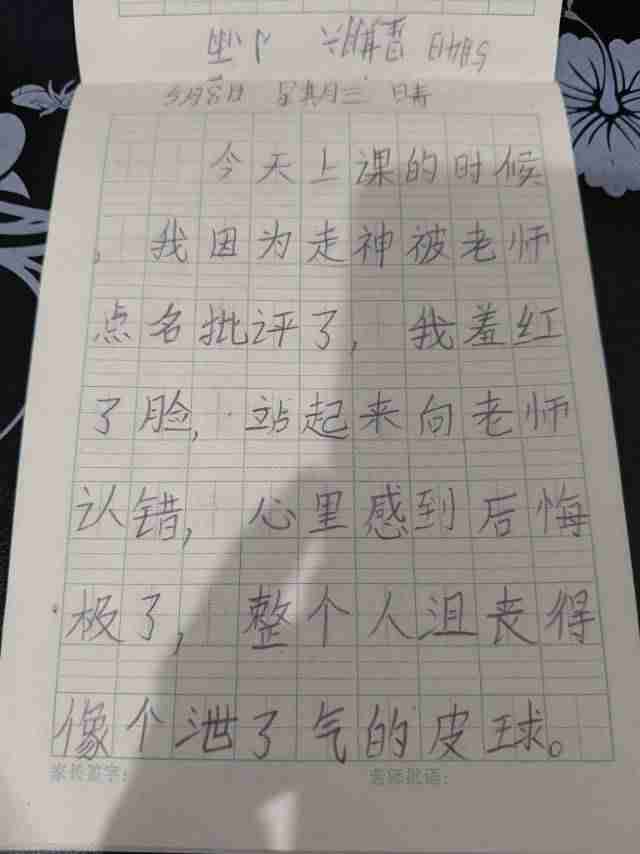 5月8日 星期三 晴
今天上课的时候
，我因为走神被老师
点名批评了，我羞红
了脸，站起来向老师
认错，心里感到后悔
极了，整个人沮丧得
像个泄了气的皮球。
家长签字：
老师批语：